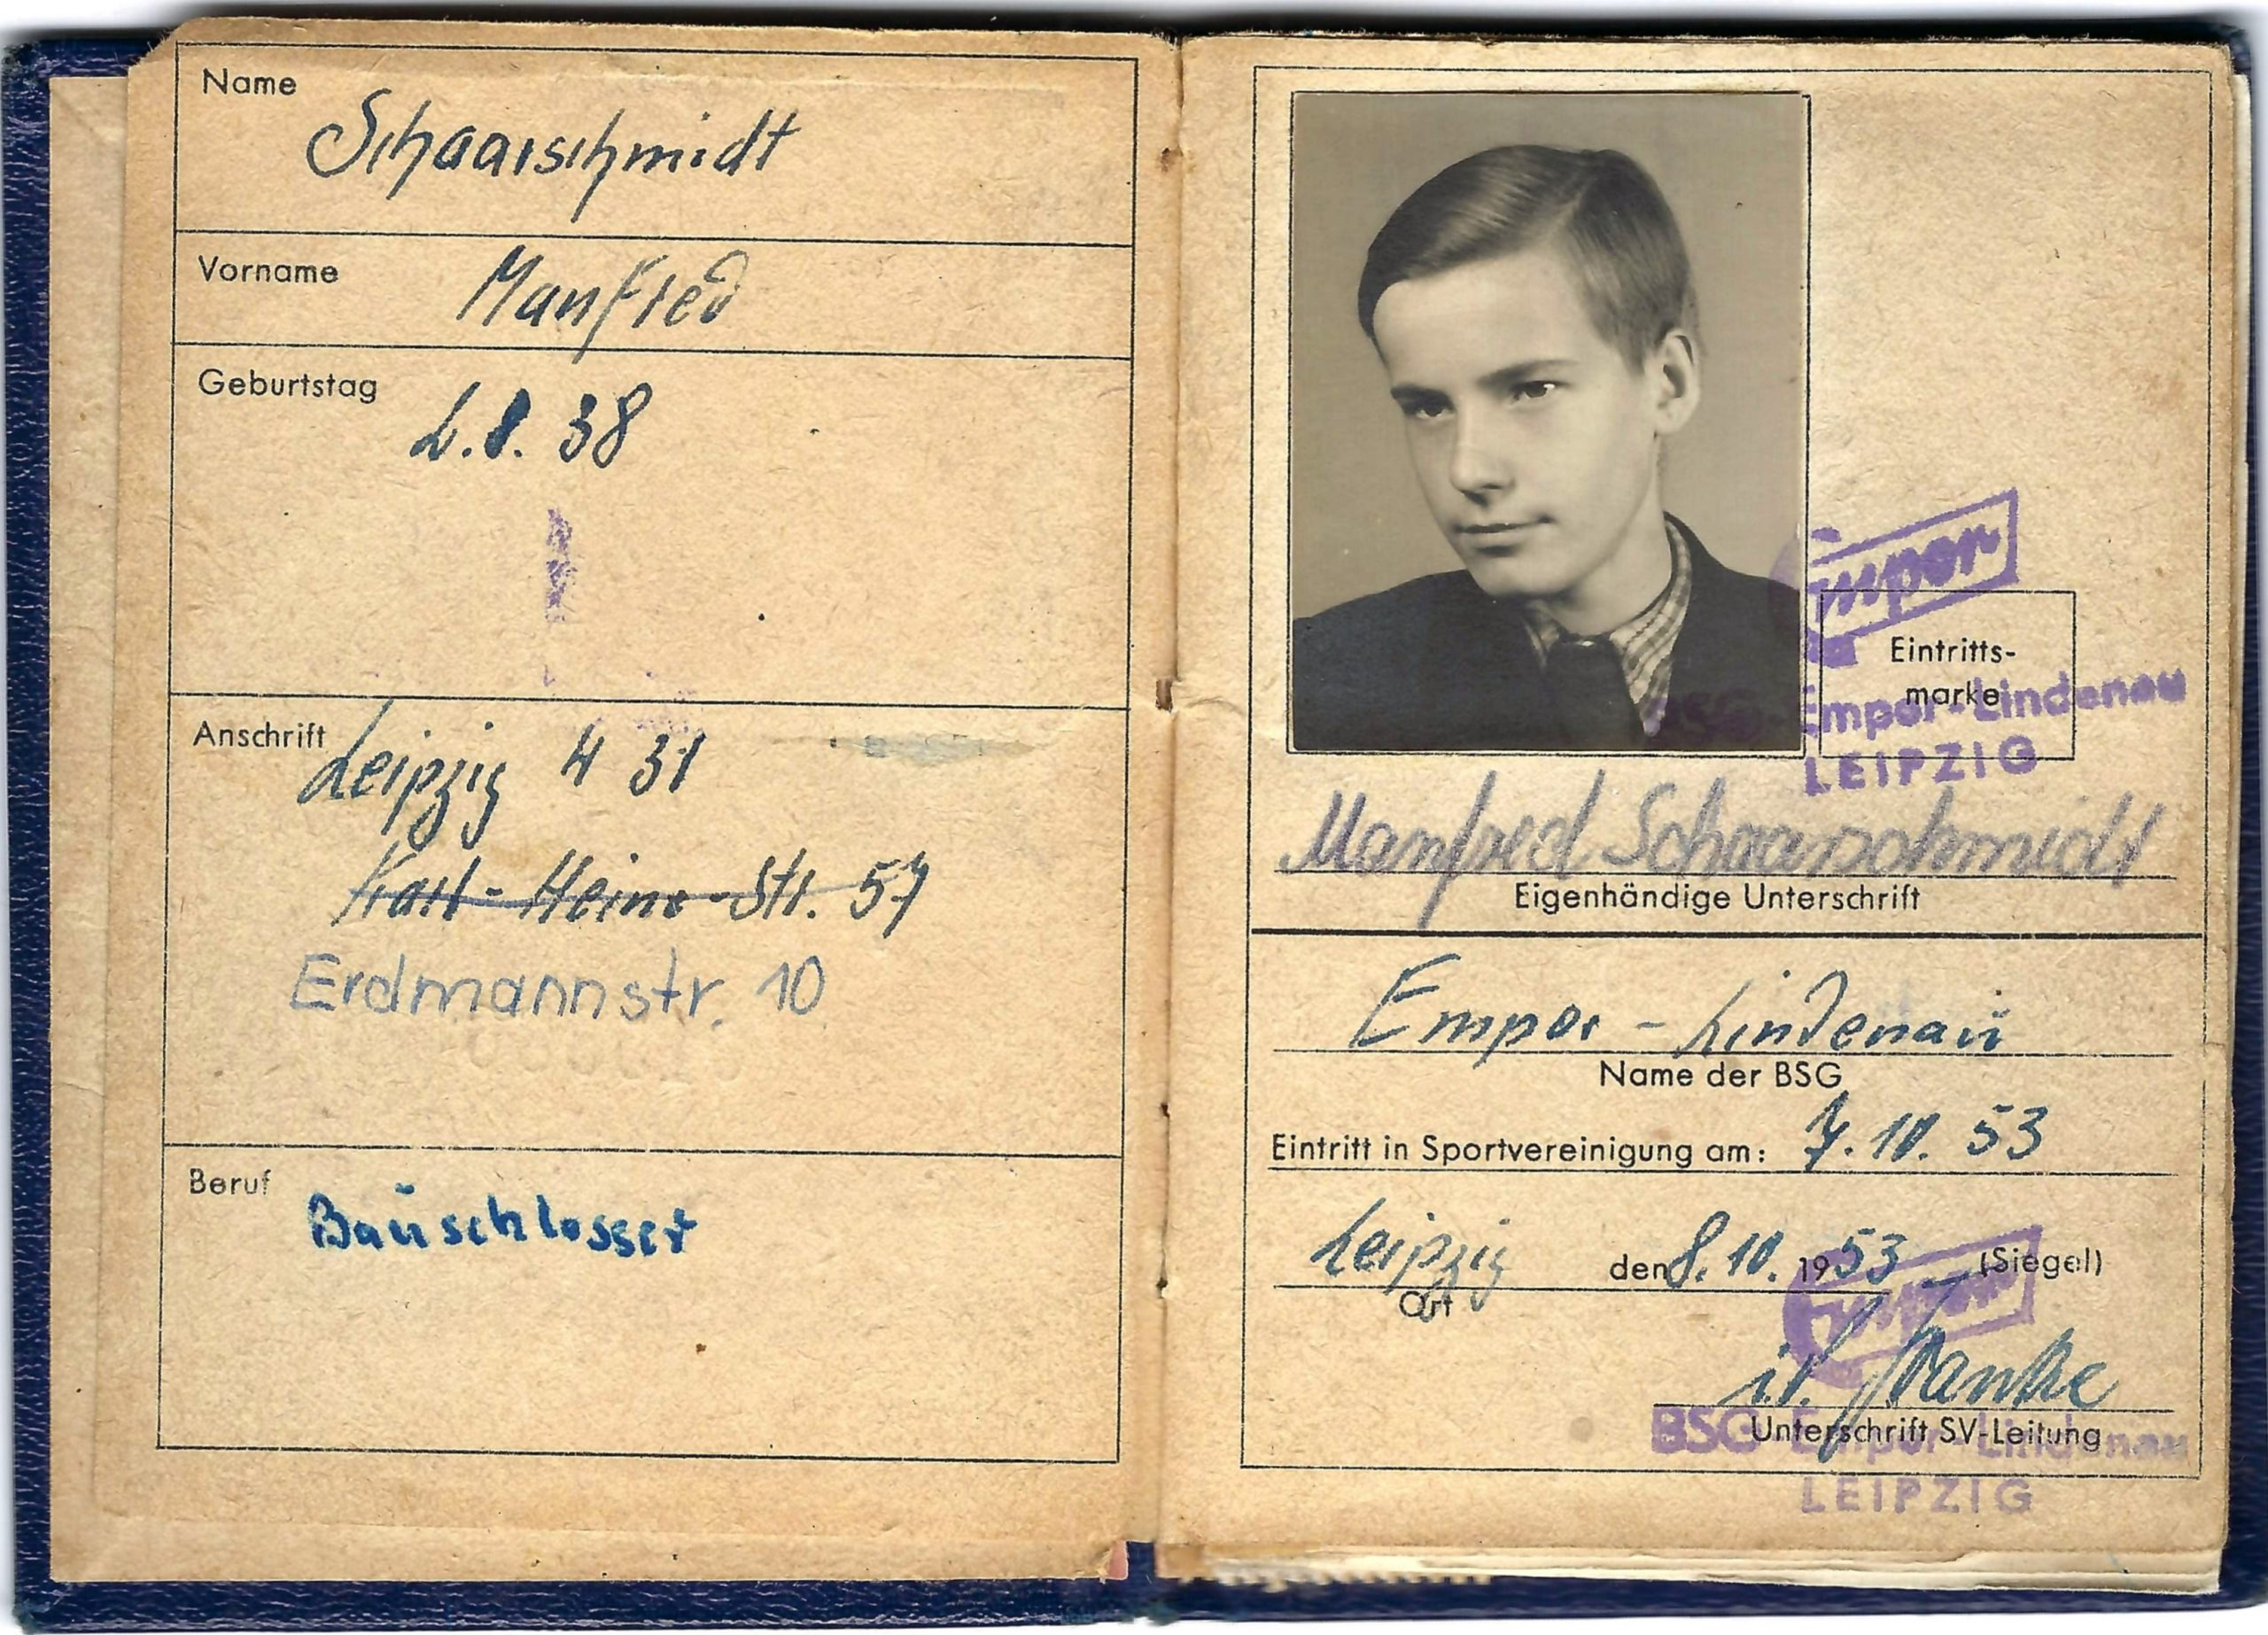 Name
Schaarschmidt
Vorname
Manfred
Geburtstag
2.8.38
Anschrift
Leipzig W 31
Karl-Heine-Str. 57
Erdmannstr. 10
Beruf
Bauschlosser
Empor
Eintritts-
marke
BSG Empor-Lindenau
LEIPZIG
Manfred Schaarschmidt
Eigenhändige Unterschrift
Empor - Lindenau
Name der BSG
Eintritt in Sportvereinigung am: 7.10.53
Leipzig den 8.10.1953 (Siegel)
Ort
Empor
Unterschrift SV-Leitung
BSG Empor-Lindenau
LEIPZIG